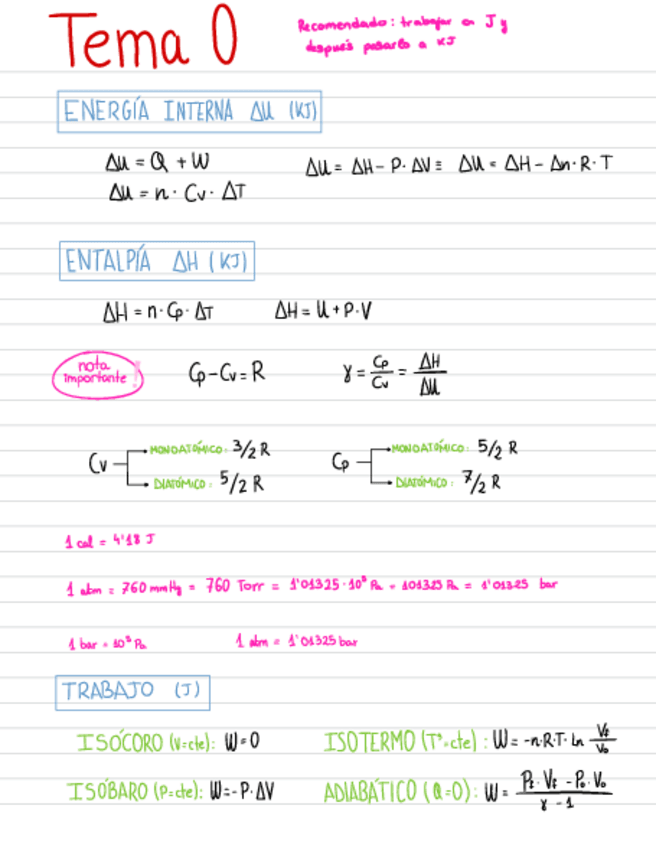 Tema 0
Recomendado: trabajar en J y
después pasarlo a KJ
ENERGÍA INTERNA ΔU (KJ)
ΔU = Q + W
ΔU = ΔH - P · ΔV ≡ ΔU = ΔH - Δn · R · T
ΔU = n · Cv · ΔT
ENTALPÍA ΔH (KJ)
ΔH = n · Cp · ΔT
ΔH = U + P · V
nota
importante!
Cp - Cv = R
γ = Cp/Cv = ΔH/ΔU
Cv
MONOATÓMICO: 3/2 R
DIATÓMICO: 5/2 R
Cp
MONOATÓMICO: 5/2 R
DIATÓMICO: 7/2 R
1 cal = 4'18 J
1 atm = 760 mmHg = 760 Torr = 1'01325 · 10⁵ Pa = 101325 Pa = 1'01325 bar
1 bar = 10⁵ Pa
1 atm = 1'01325 bar
TRABAJO (J)
ISÓCORO (V=cte): W=0
ISOTERMO (Tª=cte): W= -n·R·T· Ln Vf/V₀
ISÓBARO (P=cte): W=-P·ΔV
ADIABÁTICO (Q=0): W= Pf · Vf - P₀ · V₀ / γ - 1